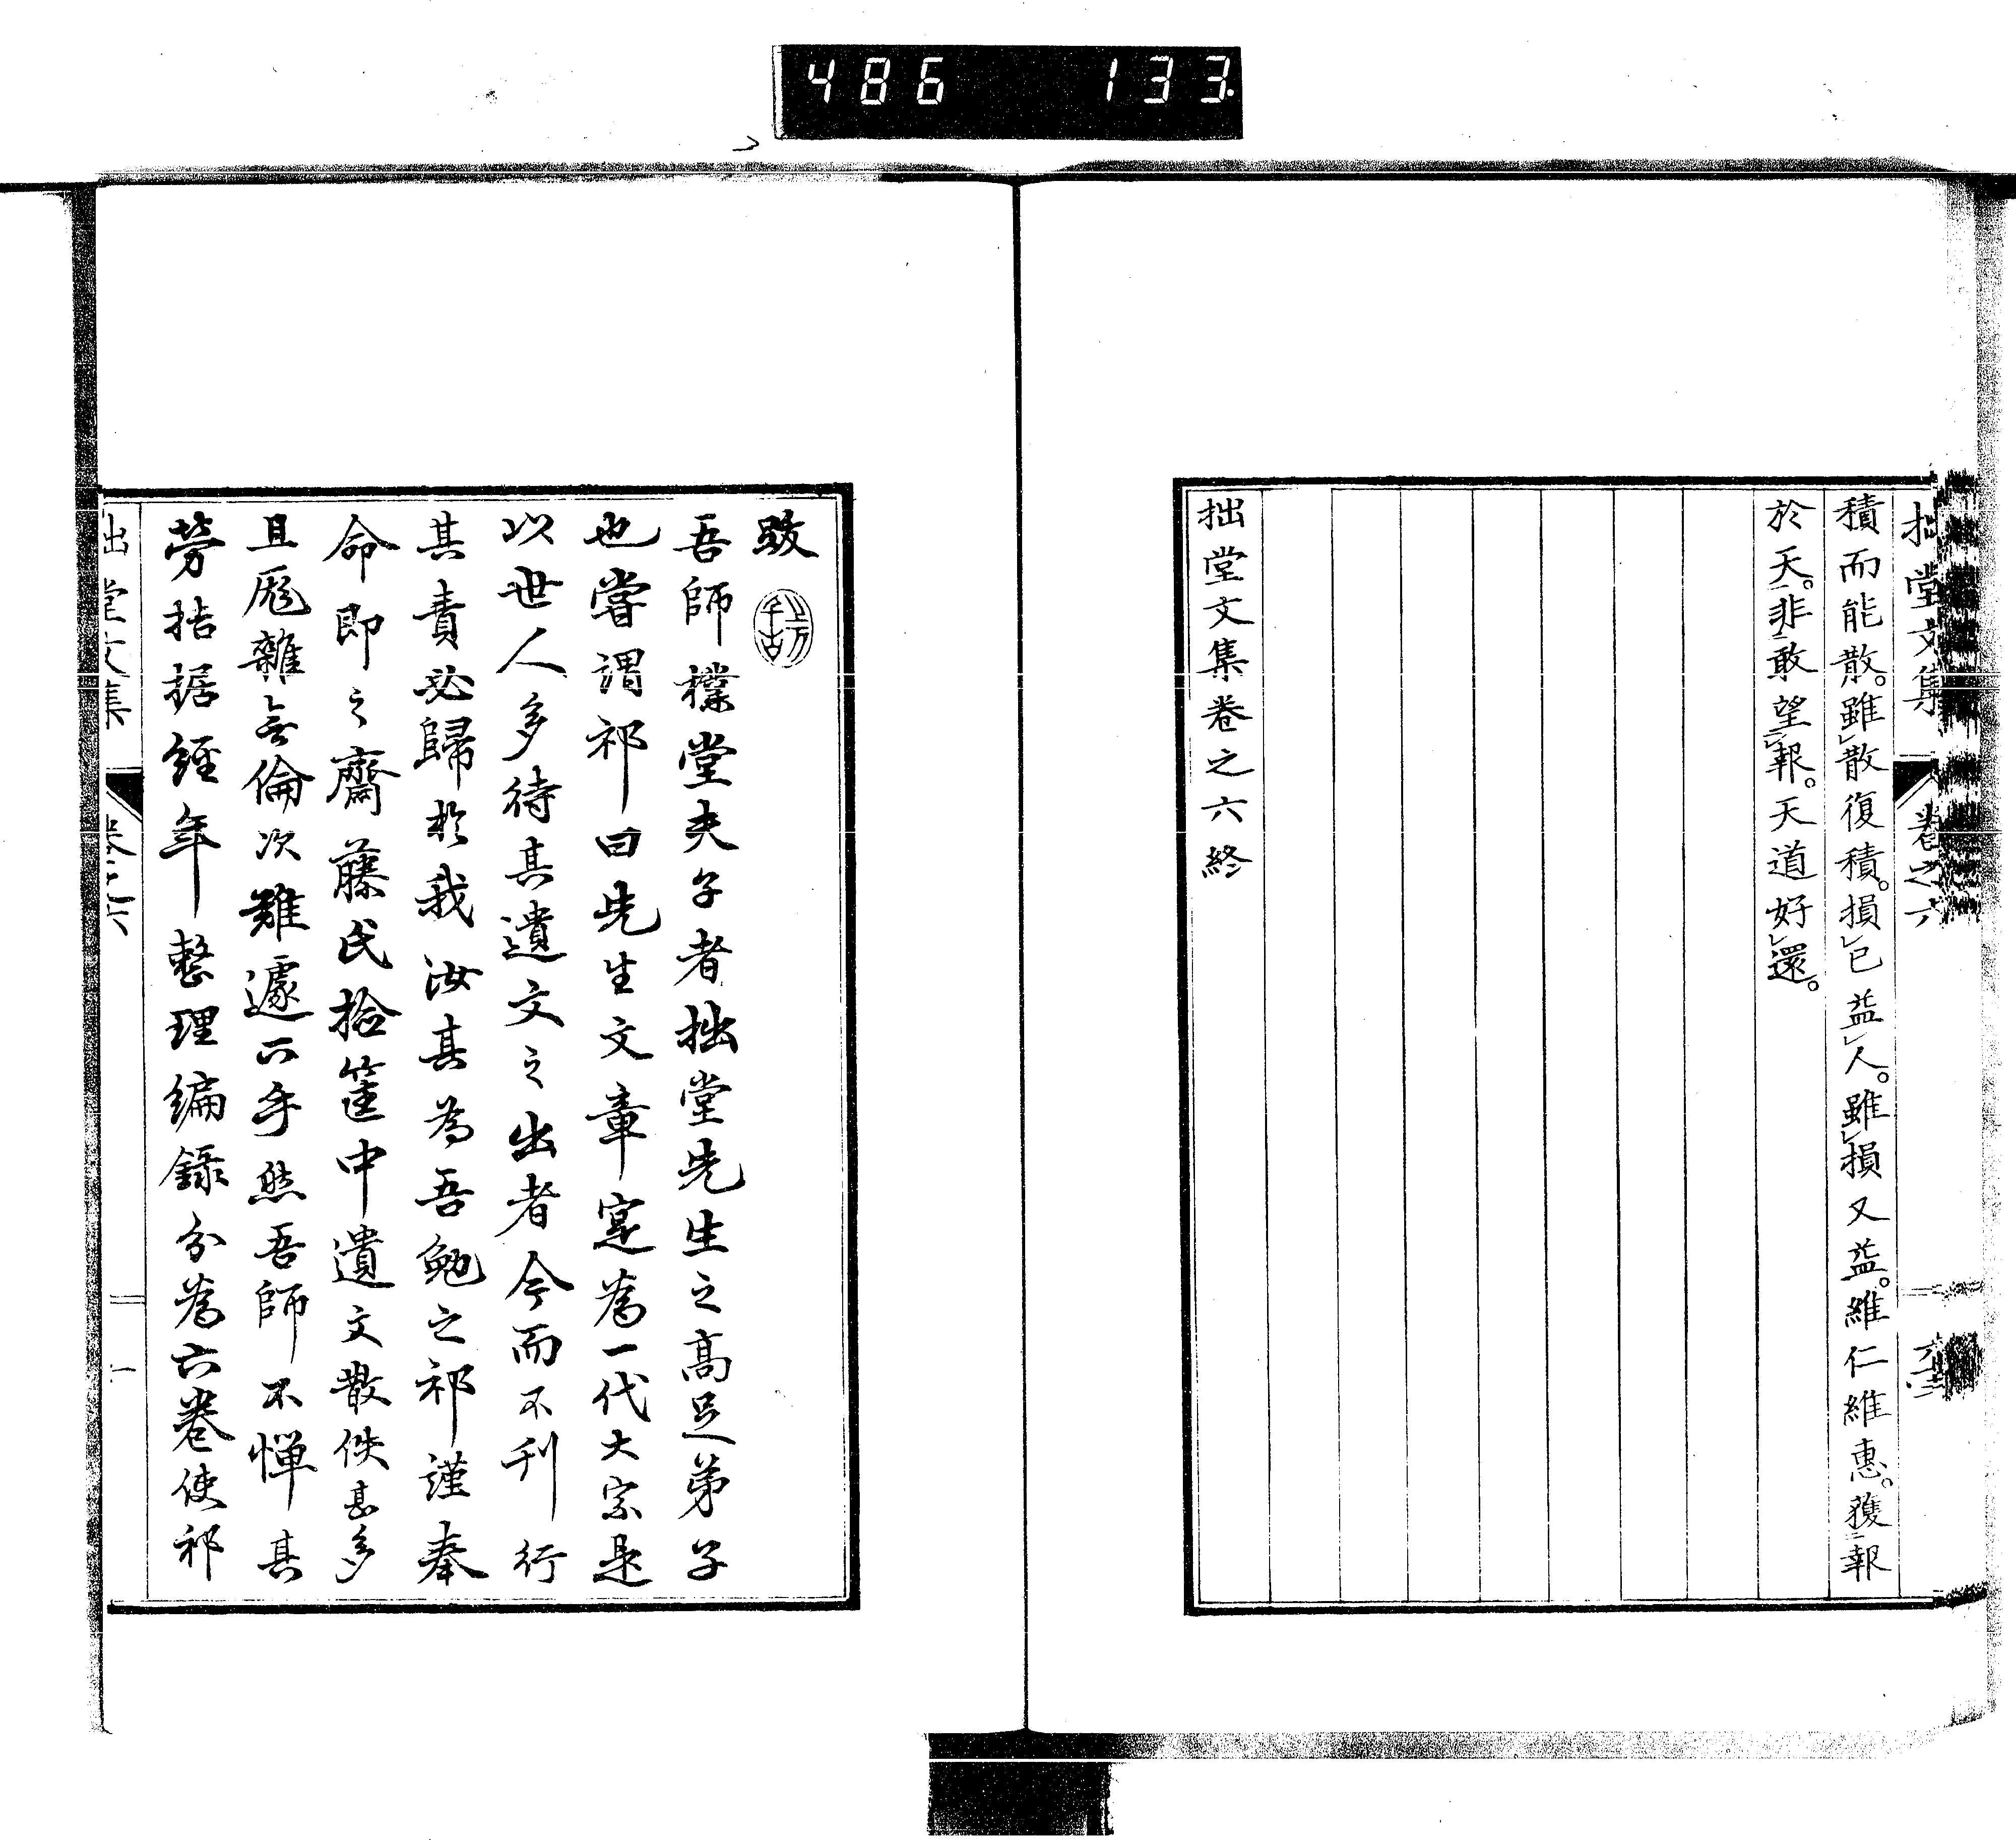 486 133
拙堂文集 卷之六
積而能散。雖散復積。損已益人。雖損又益。維仁維惠。獲報
於天。非敢望報。天道好還。
拙堂文集卷之六終
跋
吾師樸堂夫子者拙堂先生之高足弟子
也嘗謂祁曰先生文章寔為一代大宗是
以世人多待其遺文之出者今而不刊行
其責必歸於我汝其為吾勉之祁謹奉
命即之齋藤氏撿篋中遺文散佚甚多
且厖雜無倫次難遽下手然吾師不憚其
勞拮据經年整理編錄分為六卷使祁
拙堂文集 卷之六 一